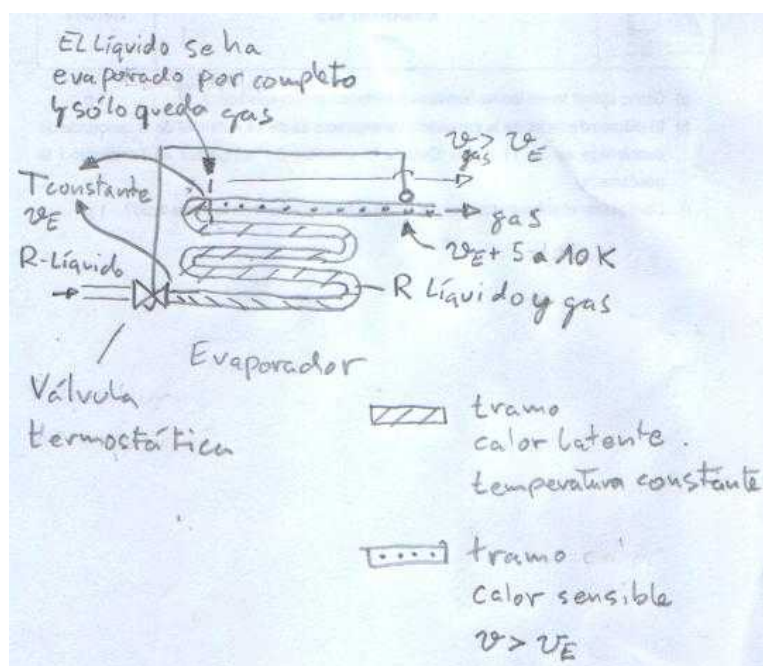 El Líquido se ha
evaporado por completo
y sólo queda gas
ϑgas > ϑE
T constante
ϑE
gas
R-Líquido
ϑE + 5 a 10 K
R Líquido y gas
Evaporador
Válvula
termostática
tramo
calor latente.
temperatura constante
tramo
calor sensible
ϑ > ϑE